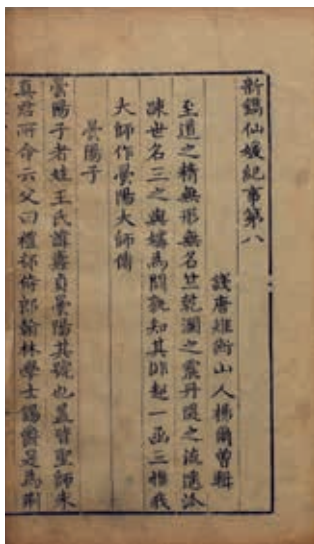 新鐫仙媛紀事第八
錢唐雉衡山人楊爾曾輯
至道之精無形無名竺乾瀾之震丹隄之流遠派
踈世名三之與嬉為間孰知其非起一函三惟我
大師作曇陽大師傳
曇陽子
曇陽子者姓王氏諱燾貞曇陽其號也盖皆聖師朱
真君所命云父曰禮部侍郎翰林學士錫爵是為荊